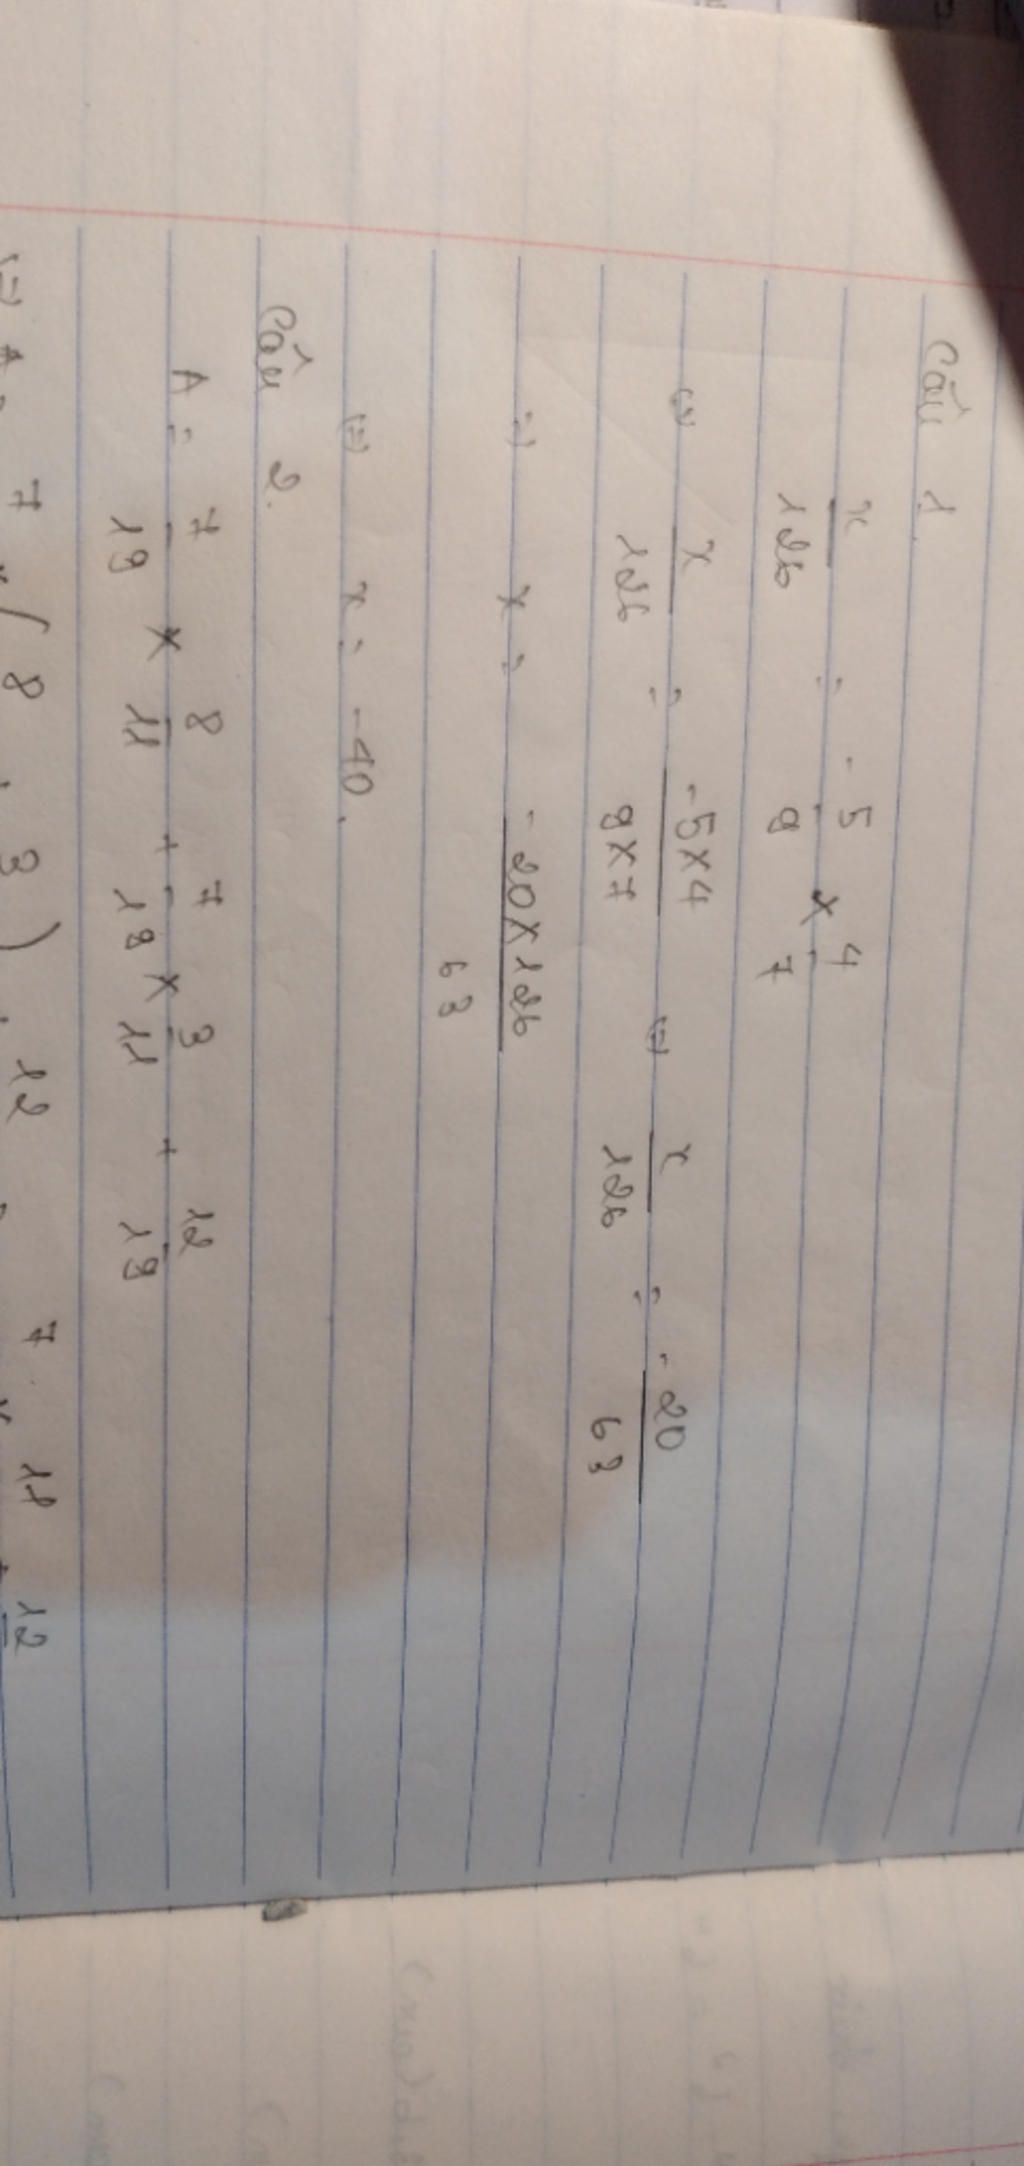 Câu 1
x/126 = -5/9 × 4/7
(=) x/126 = -5×4/9×7 (=) x/126 = -20/63
(=) x = -20×126/63
(=) x = -40.
Câu 2.
A = 7/19 × 8/11 + 7/19 × 3/11 + 12/19
(=) A = 7 × ( 8 + 3 ) + 12 = 7 × 11 + 12